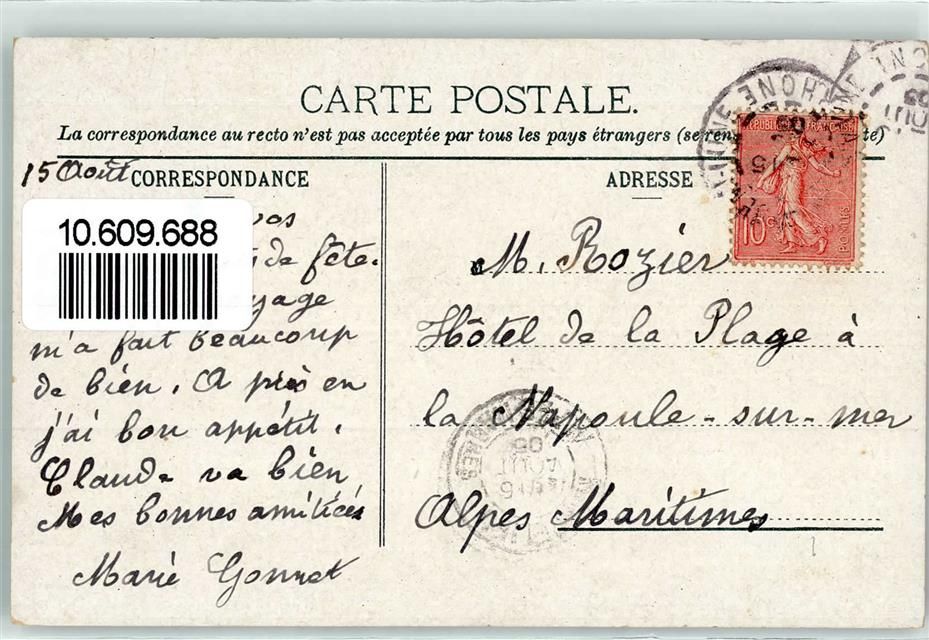 CARTE POSTALE.
La correspondance au recto n'est pas acceptée par tous les pays étrangers (se
15 Août CORRESPONDANCE
ADRESSE
10.609.688
vos
de fête.
m'a fait beaucoup
de bien. A près en
j'ai bon appétit.
Claude va bien
Mes bonnes amitiés
Marie Gonnet
REPUBLIQUE FRANÇAISE
10c
POSTES
M. Rozier
Hôtel de la Plage à
la Napoule-sur-mer
Alpes Maritimes
AOUT
05